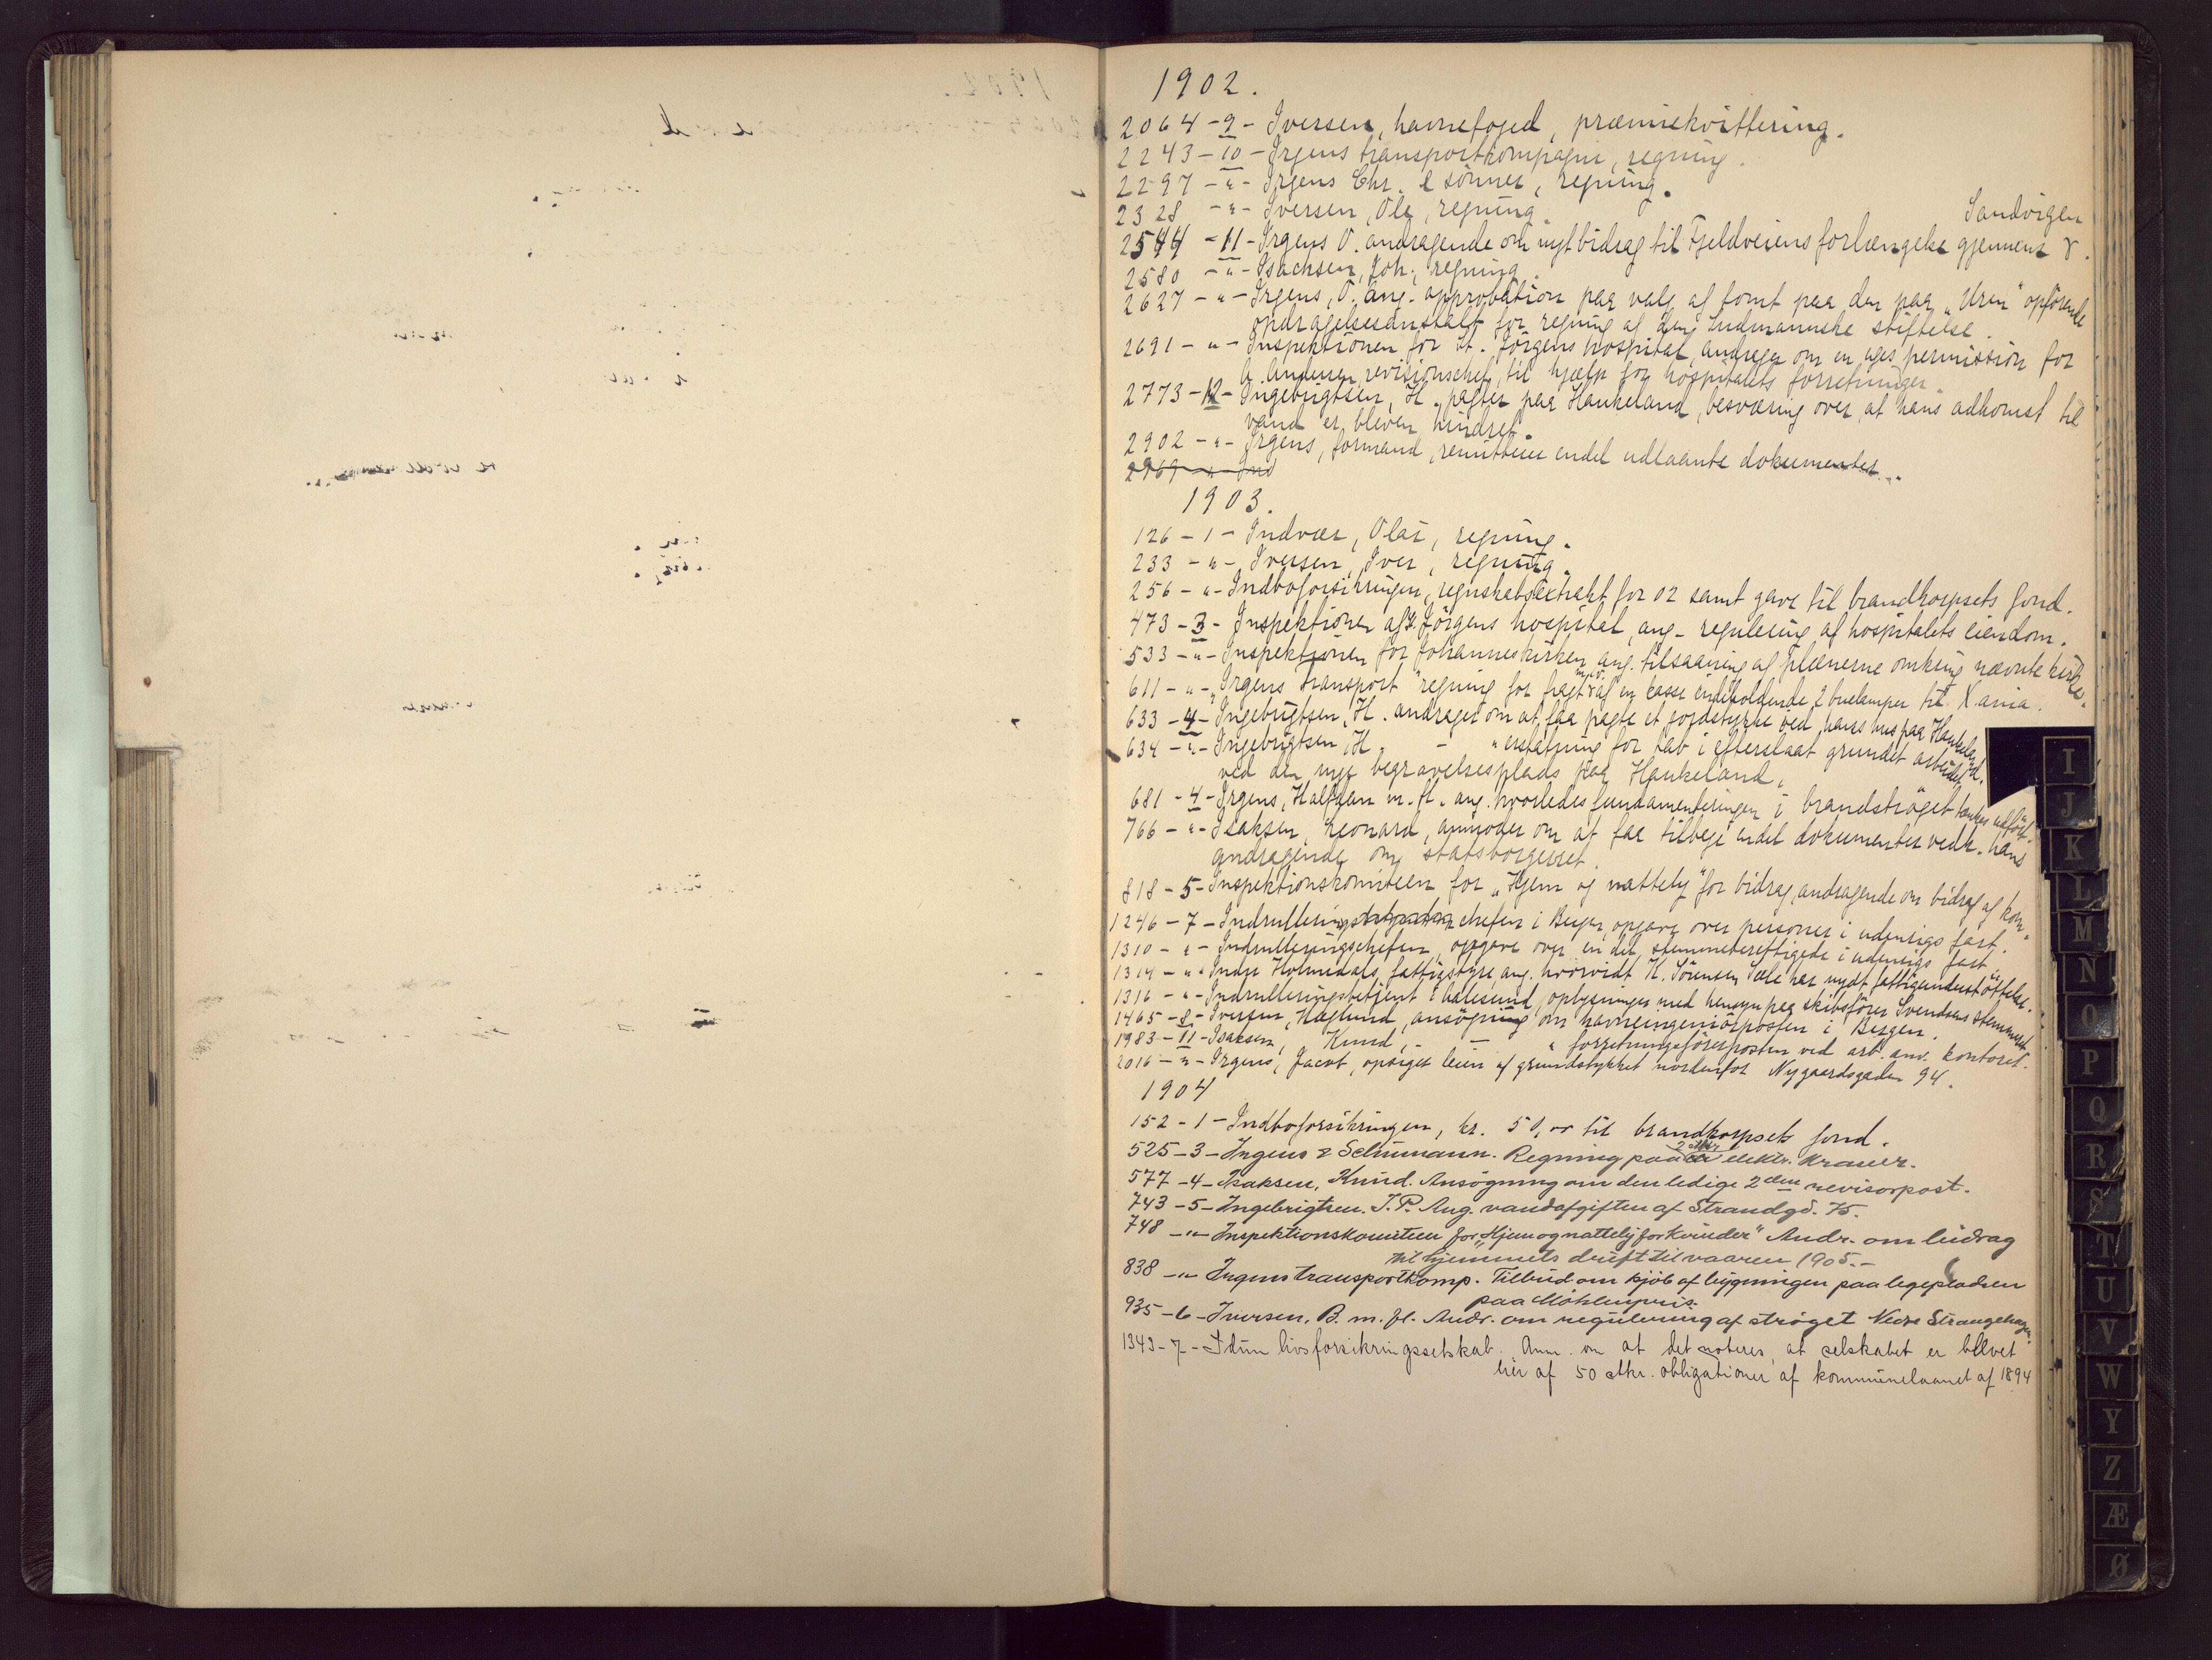 1902.
2064 - 9 - Iversen, havnefoged, præmiekvittering.
2243 - 10 - Irgens transportkompagni, regning.
2297 - " - Irgens Chr. & sønner, regning.
2328 - " - Iversen, Ole, regning.
Sandvigen
2544 - 11 - Irgens O. andragende om nyt bidrag til Fjeldveiens forlængelse gjennem
2580 - " - Isachsen, Joh., regning.
2627 - " - Irgens, O. ang. approbation paa valg af tomt paa den paa "Uren" opførende
opdragelsesanstalt for regning af den stiftelse.
2691 - " - Inspektionen for St. Jørgens hospital, andrager om en uges permission for
revisionschef, til hjælp for hospitalets forretninger.
2773 - 12 - Ingebrigtsen, H., pagter paa Haukeland, besværing over, at hans adkomst til
vand er bleven hindret.
2902 - " - Irgens, formand, remitterer endel udlaante dokumenter.
2969 - " - Ind
1903.
126 - 1 - Indvær, Olai, regning.
233 - " - Iversen, Iver, regning.
256 - " - Indboforsikringen, regnskabsextrakt for 02 samt gave til brandkorpsets fond.
473 - 3 - Inspektionen af St. Jørgens hospital, ang. regulering af hospitalets eiendom.
533 - " - Inspektionen for Johanneskirken ang. tilsaaning af plænerne omkring nævnte kirke.
611 - " - "Irgens transport" regning for fragt af en kasse indeholdende 2 buelamper til Xania.
633 - 4 - Ingebrigtsen, H. andrager om at faa pagte et jordstykke ved hans hus paa Haukeland.
634 - " - Ingebrigtsen, H. - " erstatning for tab i efterslaat grundet arbeidet
ved den nye begravelsesplads paa Haukeland.
681 - 4 - Irgens, Halfdan m. fl. ang. hvorledes fundamenteringen i brandstrøget tænkes udført.
766 - " - Isaksen, Leonard, anmoder om at faa tilbage endel dokumenter vedk. hans
andragende om statsborgerret.
818 - 5 - Inspektionskomiteen for "Hjem og nattely" for bidrag, andragende om bidrag af kom.
1246 - 7 - Indrullerings chefen i Bergen, opgave over personer i udenrigs fart.
1310 - " - Indrulleringschefen, opgave over en del stemmeberettigede i udenrigs fart
1314 - " - Indre Holmedals fattigstyre, ang. hvorvidt K. Sørensen Sæle har nydt fattigunderstøttelse.
1316 - " - Indrulleringsbetjent i Aalesund, oplysninger med hensyn paa skibsfører Svendsens stemmeret.
1465 - 8 - Iversen, Haglund, ansøgning om havneingeniørposten i Bergen.
1983 - 11 - Isaksen, Knud, - — " forretningsførerposten ved arb. anv. kontoret.
2016 - " - Irgens, Jacob, opsiger leien af grundstykket nordenfor Nygaardsgaden 94.
1904
152 - 1 - Indboforsikringen, kr. 50,00 til brandkorpsets fond.
525 - 3 - Irgens & Schumann. Regning paa 2 stkr elektr. kraner.
577 - 4 - Isaksen, Knud. Ansøgning om den ledige 2den revisorpost.
743 - 5 - Ingebrigtsen. J.P. Ang. vandafgiften af Strandgd. 75.
748 - " - Inspektionskomiteen for "Hjem og nattely for kvinder" Andr. om bidrag
til hjemmets drift til vaaren 1905. -
838 - " Irgens transportkomp. Tilbud om kjøb af bygningen paa legepladsen
paa Møhlenpris.
935 - 6 - Iversen, B. m. fl. Andr. om regulering af strøget Nedre Strangehagen.
1343 - 7 - Idun livsforsikringsselskab. Anm. om at det noteres, at selskabet er blevet
eier af 50 stkr. obligationer af kommunelaanet af 1894
I
J
K
L
M
N
O
P
Q
R
S
T
U
V
W
Y
Z
Æ
Ø